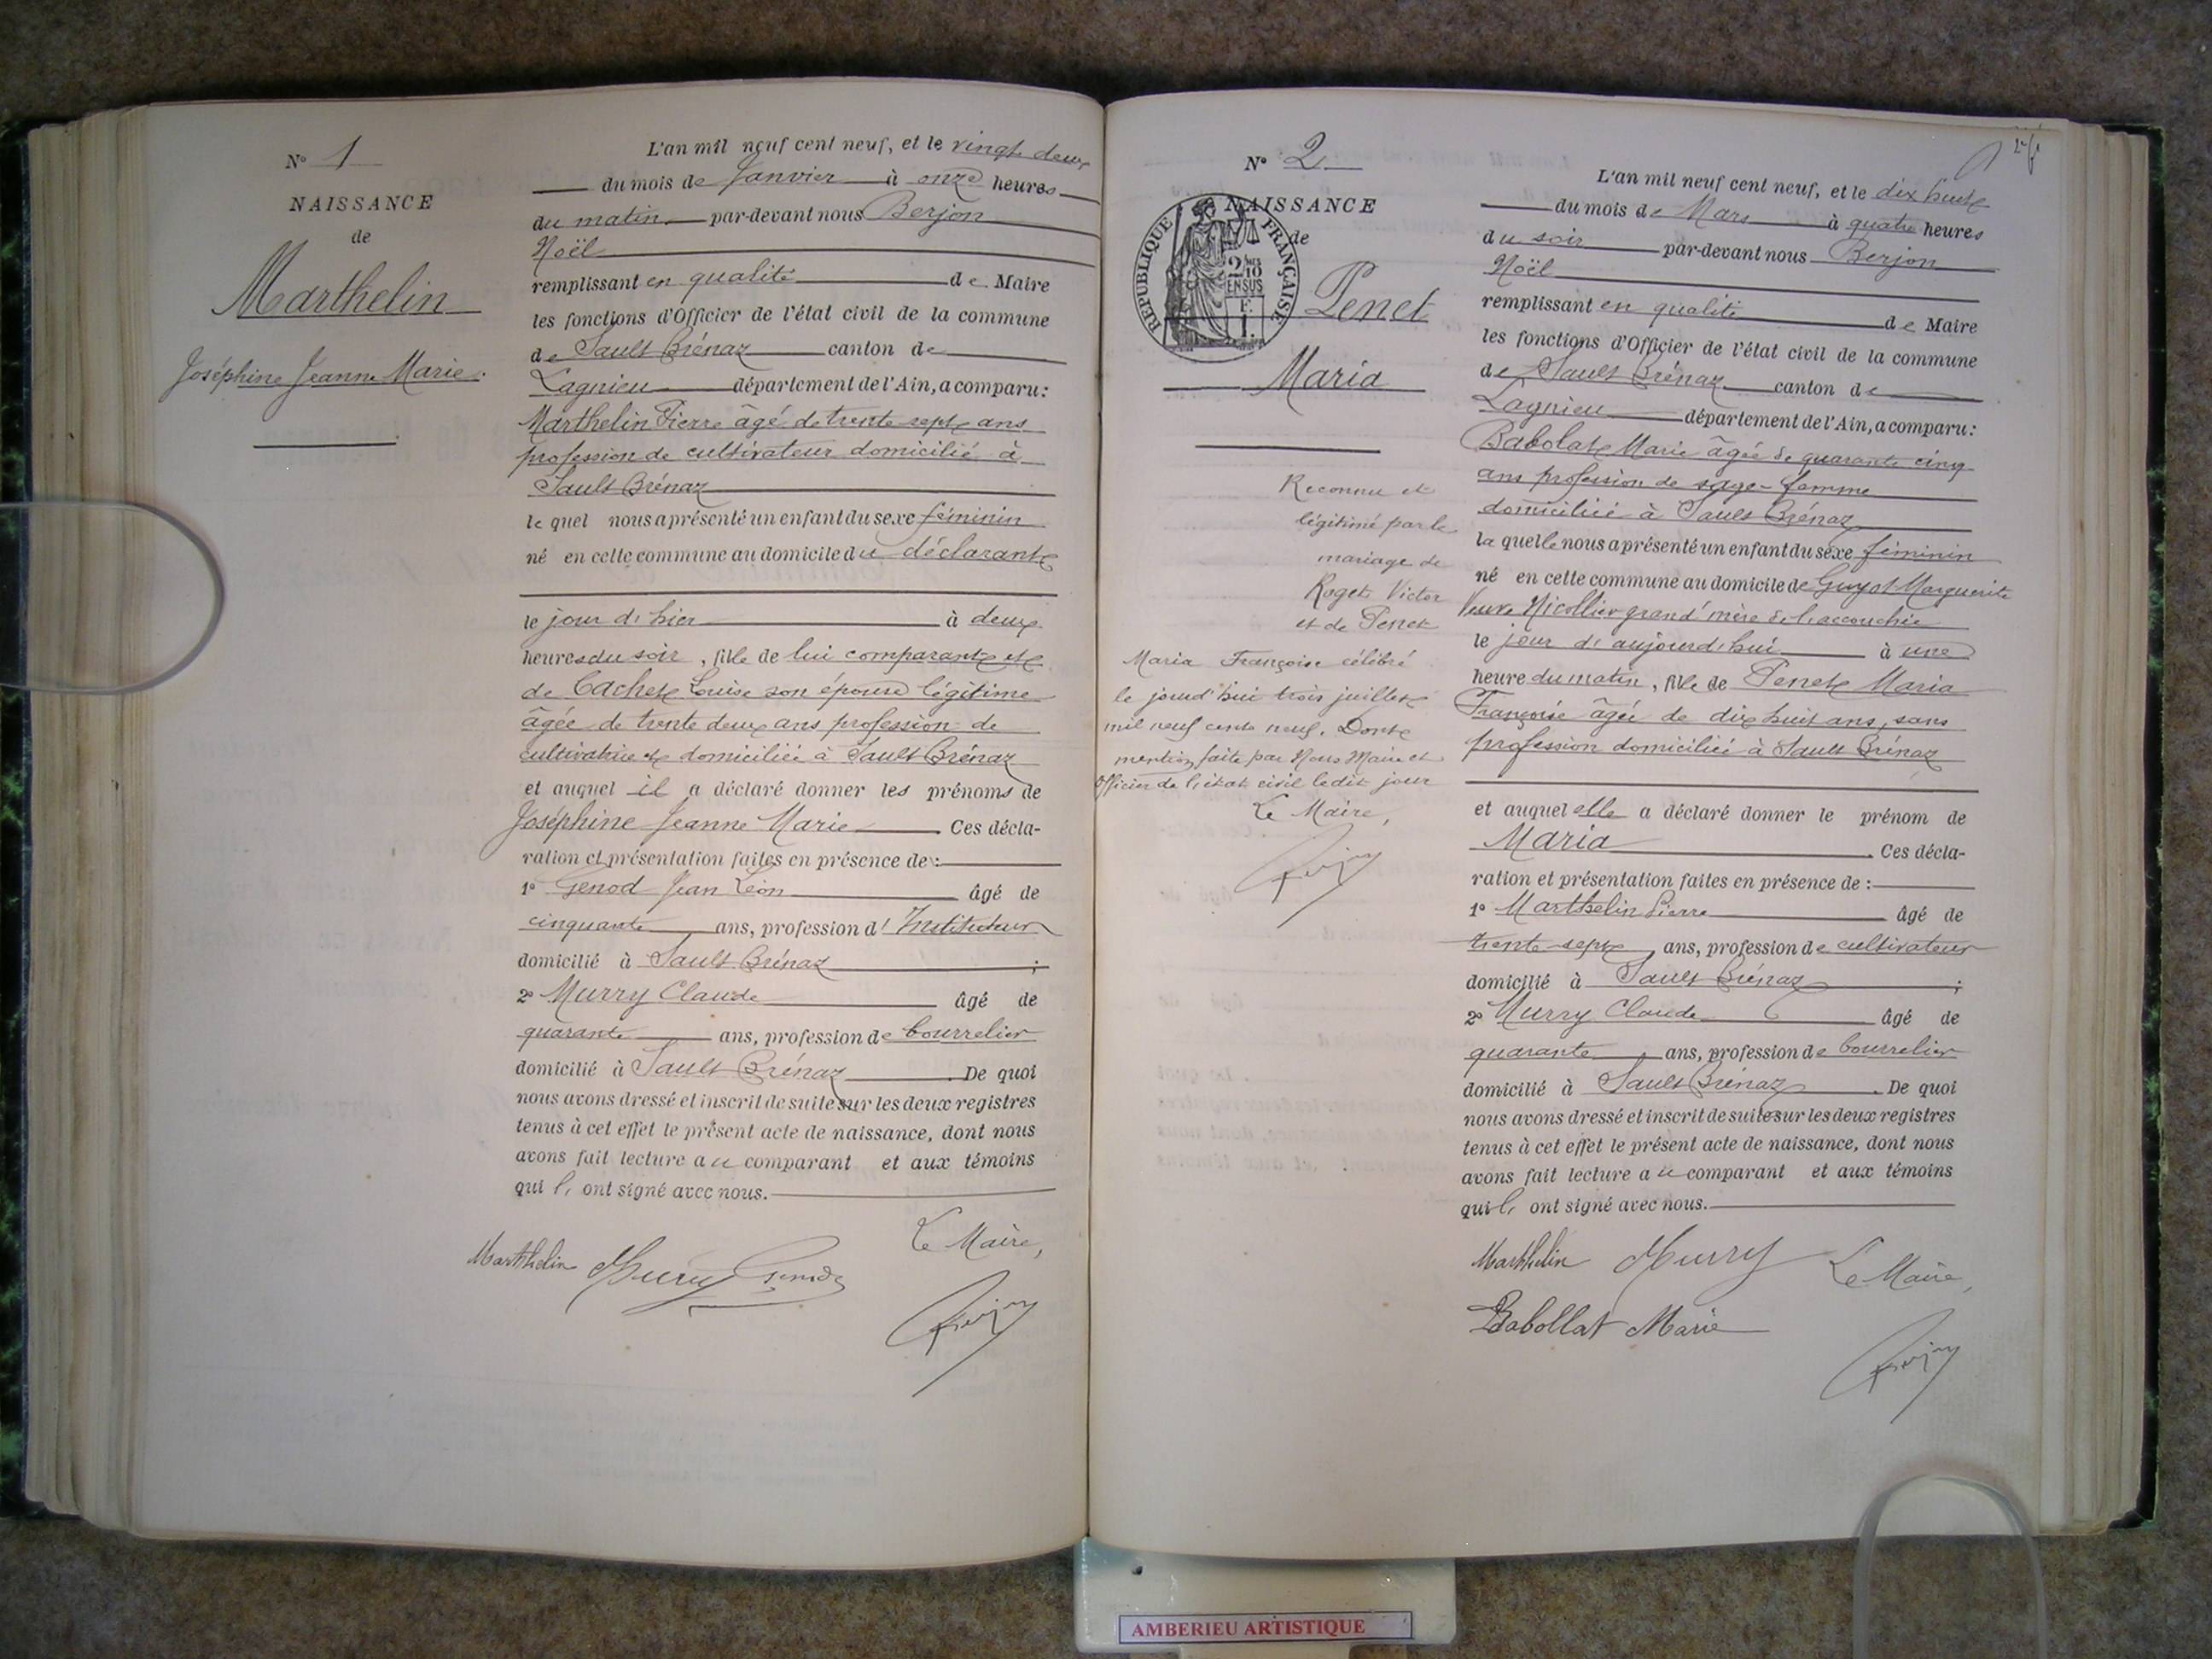 N° 1
NAISSANCE
de
Marthelin
Joséphine Jeanne Marie.
L'an mil neuf cent neuf, et le vingt deux
du mois de Janvier à onze heures
du matin par-devant nous Berjon
Noël
remplissant en qualité de Maire
les fonctions d'Officier de l'état civil de la commune
de Sault Brénaz canton de
Lagnieu département de l'Ain, a comparu:
Marthelin Pierre âgé de trente sept ans
profession de cultivateur domicilié à
Sault Brénaz
le quel nous a présenté un enfant du sexe féminin
né en cette commune au domicile du déclarant
le jour d'hier à deux
heures du soir, fille de lui comparant et
de Cachet Louise son épouse légitime
âgée de trente deux ans profession de
cultivatrice et domiciliée à Sault Brénaz
et auquel il a déclaré donner les prénoms de
Joséphine Jeanne Marie. Ces décla-
ration et présentation faites en présence de :
1° Genod Jean Léon âgé de
cinquante ans, profession d'Instituteur
domicilié à Sault Brénaz ;
2° Murry Claude âgé de
quarante ans, profession de bourrelier
domicilié à Sault Brénaz. De quoi
nous avons dressé et inscrit de suite sur les deux registres
tenus à cet effet le présent acte de naissance, dont nous
avons fait lecture au comparant et aux témoins
qui l'ont signé avec nous.
Le Maire,
Marthelin Murry Genod
Berjon
N° 2
NAISSANCE
de
REPUBLIQUE FRANÇAISE
2/10 EN SUS
1 F.
Penet
Maria
Reconnu et
légitimé par le
mariage de
Roget Victor
et de Penet
Maria Françoise célébré
le jourd'hui trois juillet
mil neuf cent neuf. Dont
mention faite par Nous Maire et
Officier de l'état civil ledit jour
Le Maire,
Berjon
L'an mil neuf cent neuf, et le dix huit
du mois de Mars à quatre heures
du soir par-devant nous Berjon
Noël
remplissant en qualité de Maire
les fonctions d'Officier de l'état civil de la commune
de Sault Brénaz canton de
Lagnieu département de l'Ain, a comparu:
Babolat Marie âgée de quarante cinq
ans profession de sage-femme
domiciliée à Sault Brénaz
la quelle nous a présenté un enfant du sexe féminin
né en cette commune au domicile de Guyot Marguerite
Veuve Nicollier grand'mère de l'accouchée
le jour d'aujourd'hui à une
heure du matin, fille de Penet Maria
Françoise âgée de dix huit ans, sans
profession domiciliée à Sault Brénaz
et auquel elle a déclaré donner le prénom de
Maria. Ces décla-
ration et présentation faites en présence de :
1° Marthelin Pierre âgé de
trente-sept ans, profession de cultivateur
domicilié à Sault Brénaz ;
2° Murry Claude âgé de
quarante ans, profession de bourrelier
domicilié à Sault Brénaz. De quoi
nous avons dressé et inscrit de suite sur les deux registres
tenus à cet effet le présent acte de naissance, dont nous
avons fait lecture au comparant et aux témoins
qui l'ont signé avec nous.
Marthelin Murry Le Maire,
Babollat Marie
Berjon
AMBERIEU ARTISTIQUE